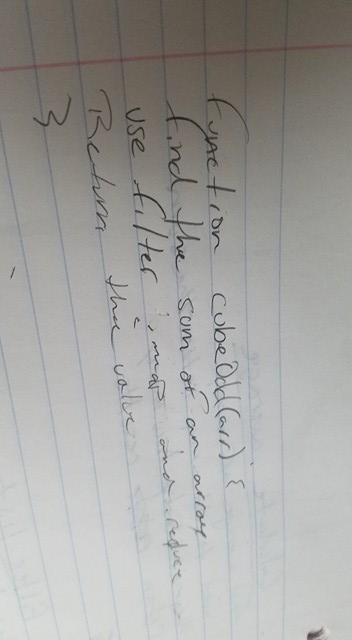 function cubeOdd(arr) {
find the sum of an array
use filter, map and reduce
Return the value
}